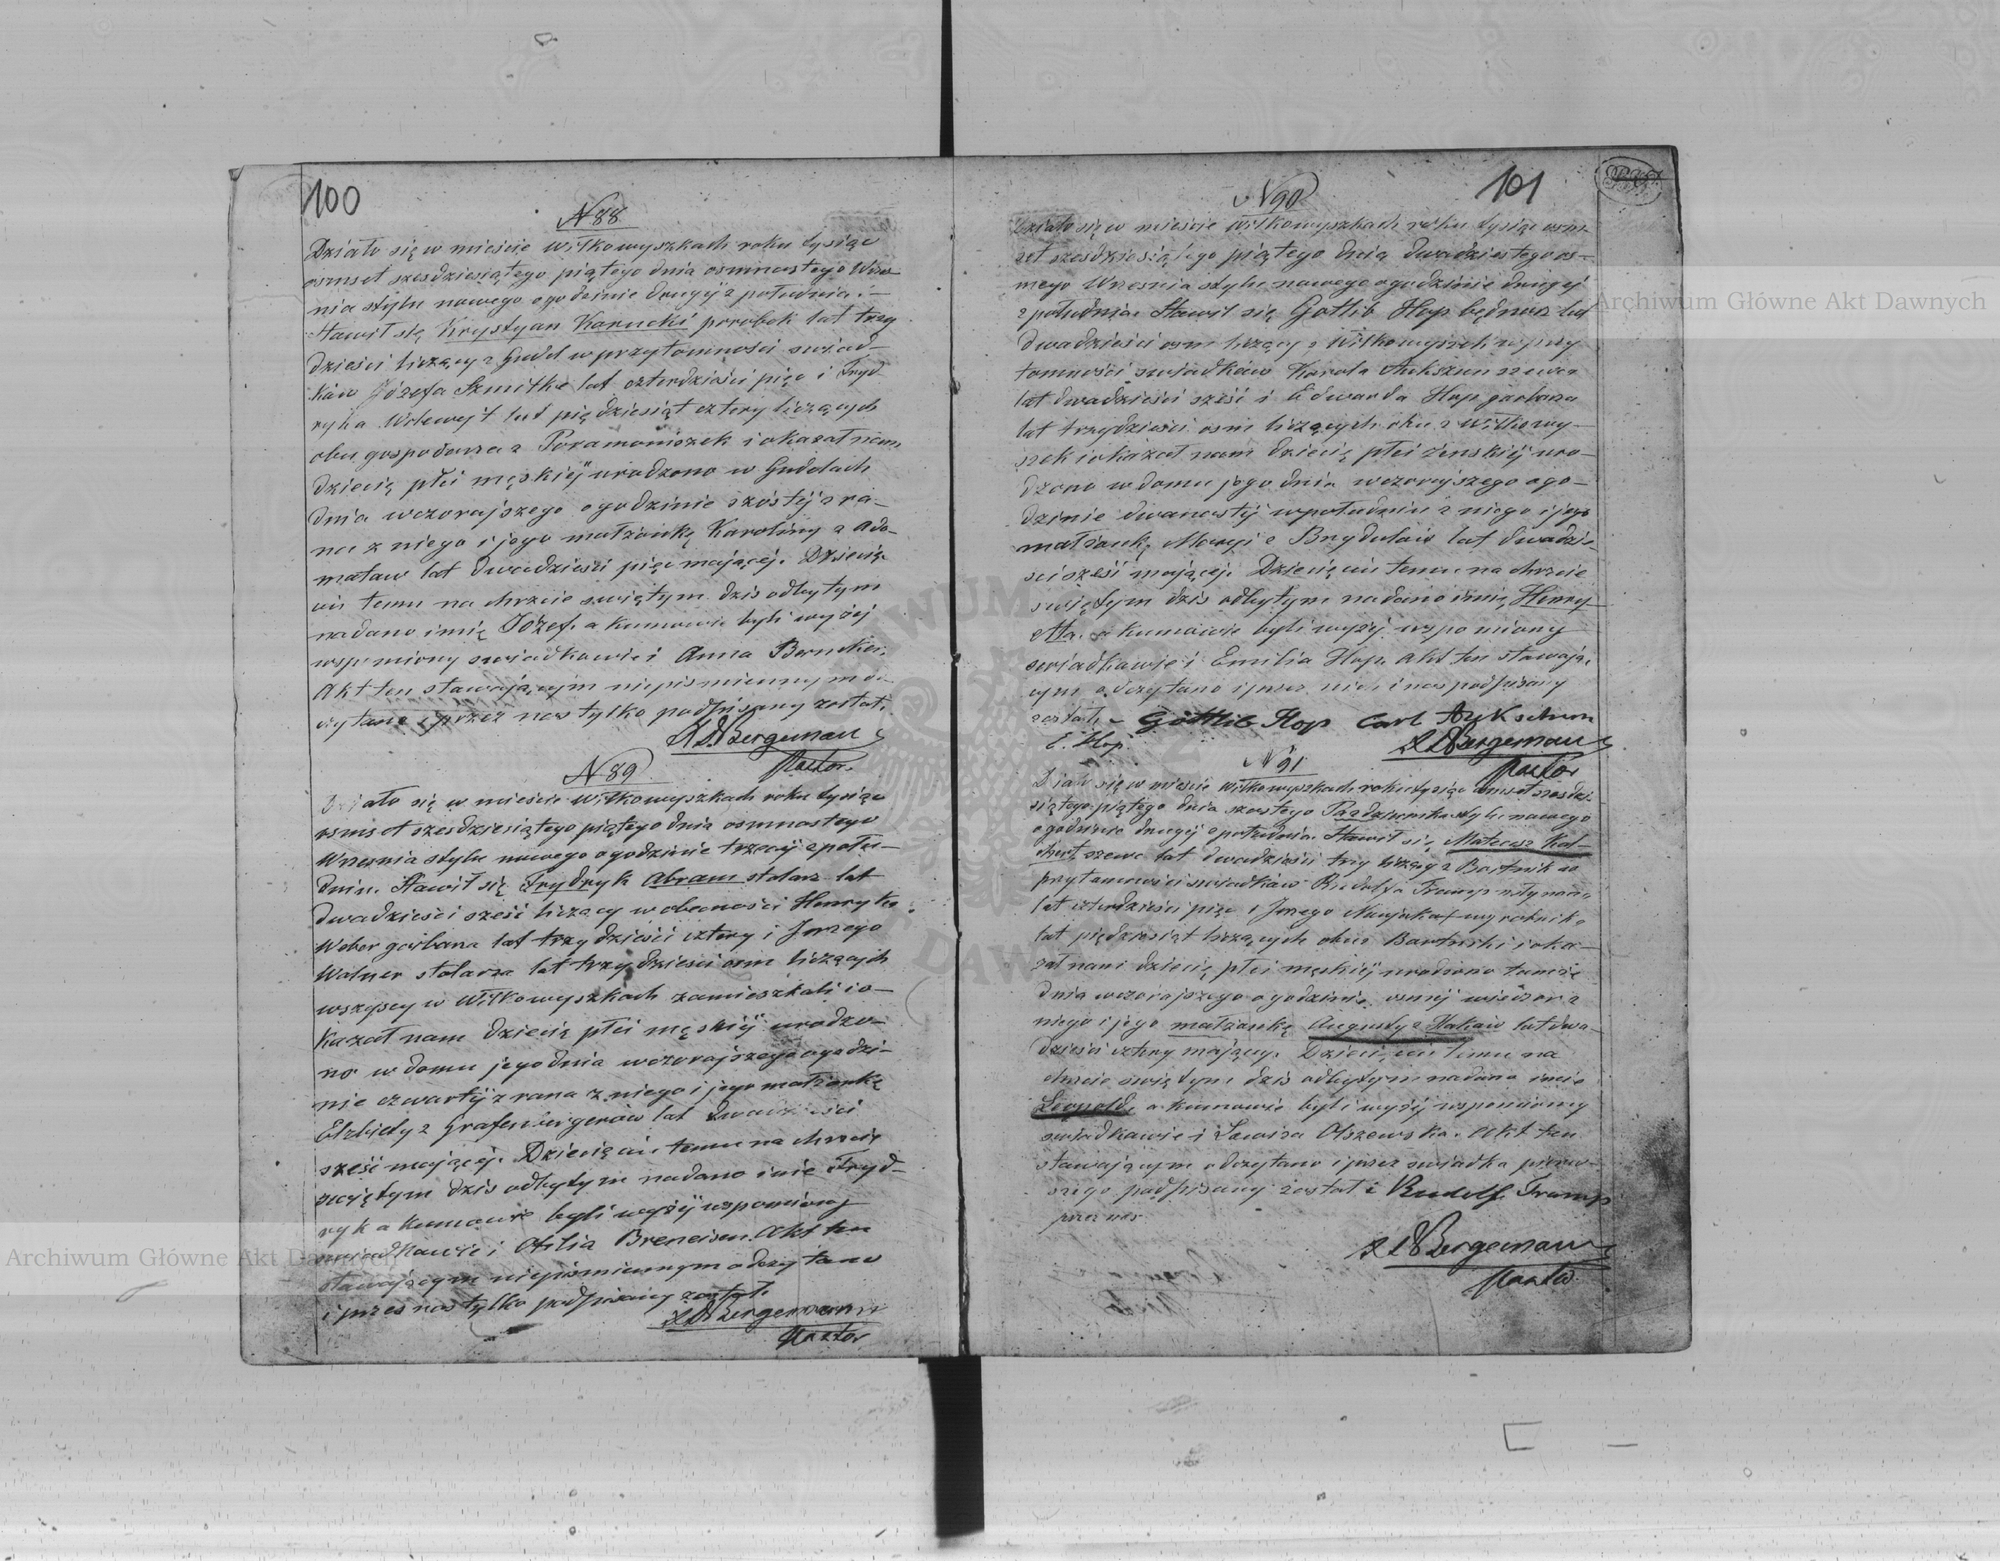 100
N 88
Działo się w mieście Wiłkowyszkach roku tysiąc
osmset szesdziesiątego piątego dnia osmnastego Wrze-
nia stylu nowego o godzinie drugiy z południa.
Stawił się Krystyan Karucki parobek lat trzy
dzieści liczący z Gudel w przytomności swiad
ków Józefa Szmitke lat czterdzieści pięc i Fryd
ryka lat pięcdziesiąt cztery liczących
obu gospodarza z i okazał nam
dziecię płci męskiéy urodzono w Gudelach
dnia wczorajszego o godzinie szóstéy z ra-
na z niego i jego małżonkę Karoliny z Ada-
mataw lat dwadzieści pięc mającéj. Dziecię
ciu temu na chrzcie swiętym dzis odbytym
nadano imię Józef. a kumowie byli wyżej
wspomniony swiadkowie i Anna
Akt ten stawającym niepismiennym od
czytano i przez nas tylko podpisany został.
Bergeman
Pastor.
N 89
Działo się w mieście Wiłkowyszkach roku tysiąc
osmset szesdziesiątego piątego dnia osmnastego
Wrzesnia stylu nowego o godzinie trzeciy z połu-
dnia. Stawił się Frydryk Abram stolarz lat
dwadzieści sześć liczący w obecności Henryka
Weber garbarza lat trzydzieści cztery i Jerzego
Watner stolarza lat trzydzieści osm liczących
wszyscy w Wiłkowyszkach zamieszkali i o-
kazał nam dziecię płci męskiéy urodzo-
no w domu jego dnia wczorajszego o godzi-
nie czwartéy z rana z niego i jego małżonkę
Elzbiety z Grafenbergerów lat dwadzieści
sześć mającéj. Dziecięciu temu na chrzcie
swiętym dzis odbytym nadano imie Fryd-
ryk a kumowie byli wyżéy wspomniony
swiadkowie i Otilia Breneisen. Akt ten
stawającym niepismiennym odczytano
i przez nas tylko podpisany został.
Bergemann
Pastor
101
N 90
Działo się w mieście Wiłkowyszkach roku tysiąc osm-
set szesdziesiątego piątego dnia dwadziestego os-
mego Wrzesnia stylu nowego o godzinie drugiéj
z południa. Stawił się Gotlib Hop bednarz lat
dwadzieści osm liczący z Wiłkowyszek w przy
tomności swiadków Karola Aukszun szewca
lat dwadzieści sześć i Edwarda Hop garbarza
lat trzydzieści osm liczących obu z Wiłkowy-
szek i okazał nam dziecię płci żenskiéj uro-
dzono w domu jego dnia wczorajszego o go-
dzinie dwunastéj w południe z niego i jego
małżonkę Maryi z Brydulaiw lat dwadzie-
ści sześć mającéj. Dziecięciu temu na chrzcie
swiętym dzis odbytym nadano imię Henry-
etta. a kumowie byli wyżéj wspomniony
swiadkowie i Emilia Hop. Akt ten stawają-
cym odczytano i przez nich i nas podpisany
został. - Gottlib Hop Carl Aukschun
E. Hop. Bergeman
Pastor
N 91
Działo się w mieście Wiłkowyszkach roku tysiąc osmset szesdzie-
siątego piątego dnia szostego Pazdziernika stylu nowego
o godzinie drugiéj z południa. Stawił się Mateusz Kal-
szewc lat dwadzieści trzy liczący z Bartnik w
przytomności swiadków Rudolfa Tramp
lat czterdzieści pięc i Jerzego wyrobnika
lat pięcdziesiąt liczących obu z Bartnik i oka-
zał nam dziecię płci męskiéj urodzono tamże
dnia wczorajszego o godzinie osméj wieczor z
niego i jego małżonkę Augusty z lat dwa-
dzieści cztery mającéj. Dziecięciu temu na
chrzcie swiętym dzis odbytym nadano imie
Leopold, a kumowie byli wyżéj wspomniony
swiadkowie i Lowisa Olszewska. Akt ten
stawającym odczytano i przez swiadka pierw-
szego podpisany został i Rudolf Tramp
przez nas
Bergeman
Pastor.
Archiwum Główne Akt Dawnych
Archiwum Główne Akt Dawnych